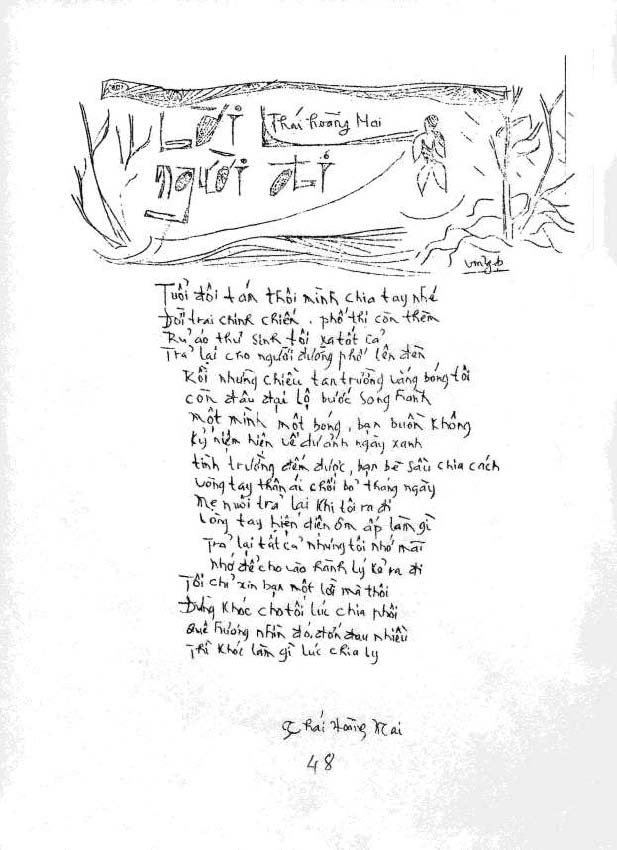 Lời
Thái Hoàng Mai
người đi
Tuổi đôi tám thôi mình chia tay nhé
Đời trai chinh chiến, phố thị còn thêm
Rũ áo thư sinh tôi xa tất cả
Trả lại cho người đường phố lên đèn
Rồi những chiều tan trường vắng bóng tôi
Còn đâu đại lộ bước song hành
Một mình một bóng, bạn buồn không
Kỷ niệm hiện về dư ảnh ngày xanh
tình trường đếm được, bạn bè sầu chia cách
Vòng tay thân ái chối bỏ tháng ngày
Mẹ nuôi trả lại khi tôi ra đi
Vòng tay hiện diện ôm ấp làm gì
Trả lại tất cả nhưng tôi nhớ mãi
nhớ để cho vào hành lý kẻ ra đi
Tôi chỉ xin bạn một lời mà thôi
Đừng khóc cho tôi lúc chia phôi
Quê hương nhìn đó, đớn đau nhiều
Thì khóc làm gì lúc chia ly
Thái Hoàng Mai
48